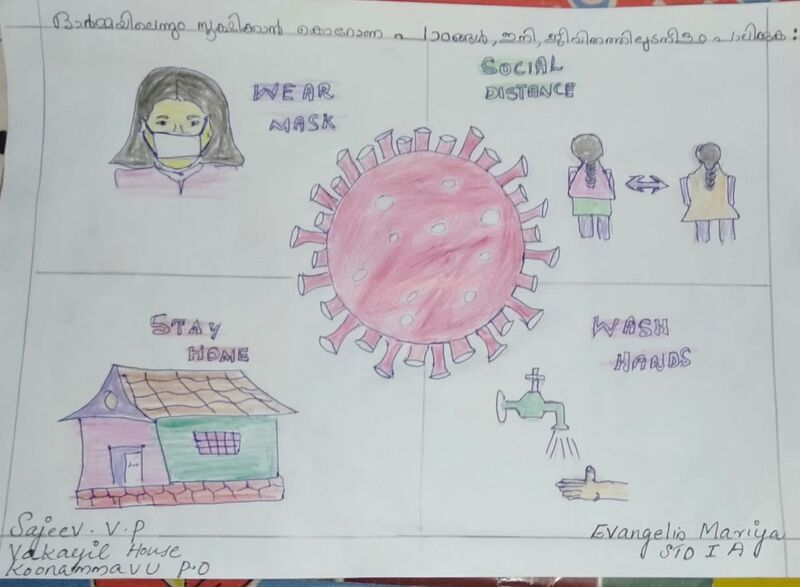 ഓർമ്മയിലെന്നും സൂക്ഷിക്കാൻ കൊറോണ പാഠങ്ങൾ, ഇനി, ജീവിതത്തിലുടനീളം പാലിക്കുക :
WEAR
MASK
SOCIAL
DISTANCE
STAY
HOME
WASH
HANDS
Sajeev. V. P
Vakayil House
Koonammavu P.O
Evangelin Mariya
STD I A